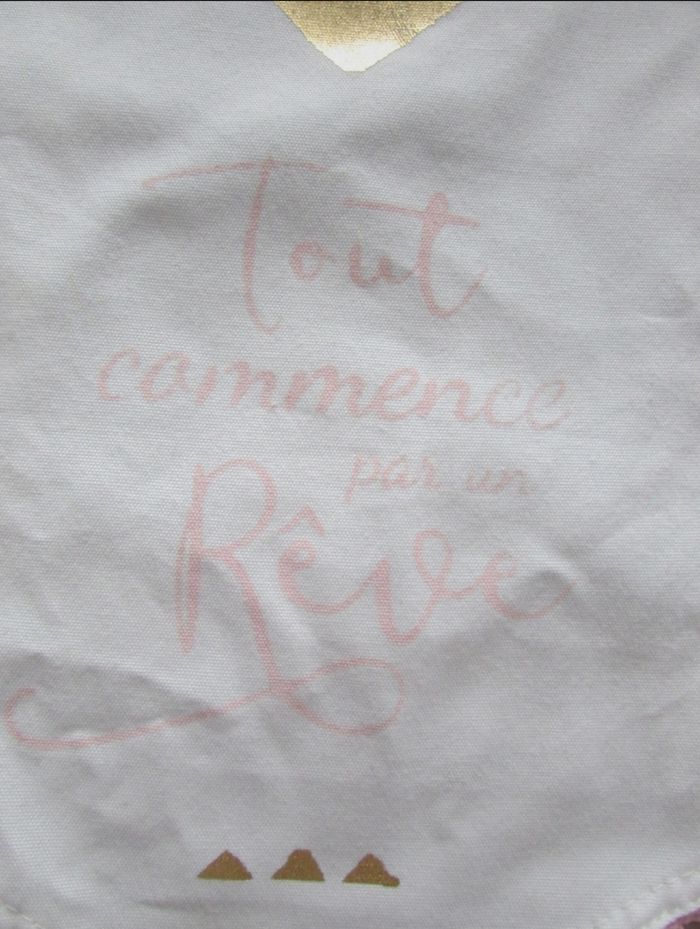 Tout
commence
par un
Rêve